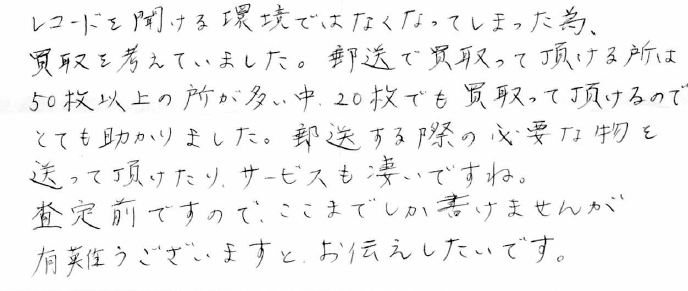 レコードを聞ける環境ではなくなってしまった為、
買取を考えていました。郵送で買取って頂ける所は
50枚以上の所が多い中、20枚でも買取って頂けるので
とても助かりました。郵送する際の必要な物を
送って頂けたり、サービスも凄いですね。
査定前ですので、ここまでしか書けませんが
有難うございますと、お伝えしたいです。